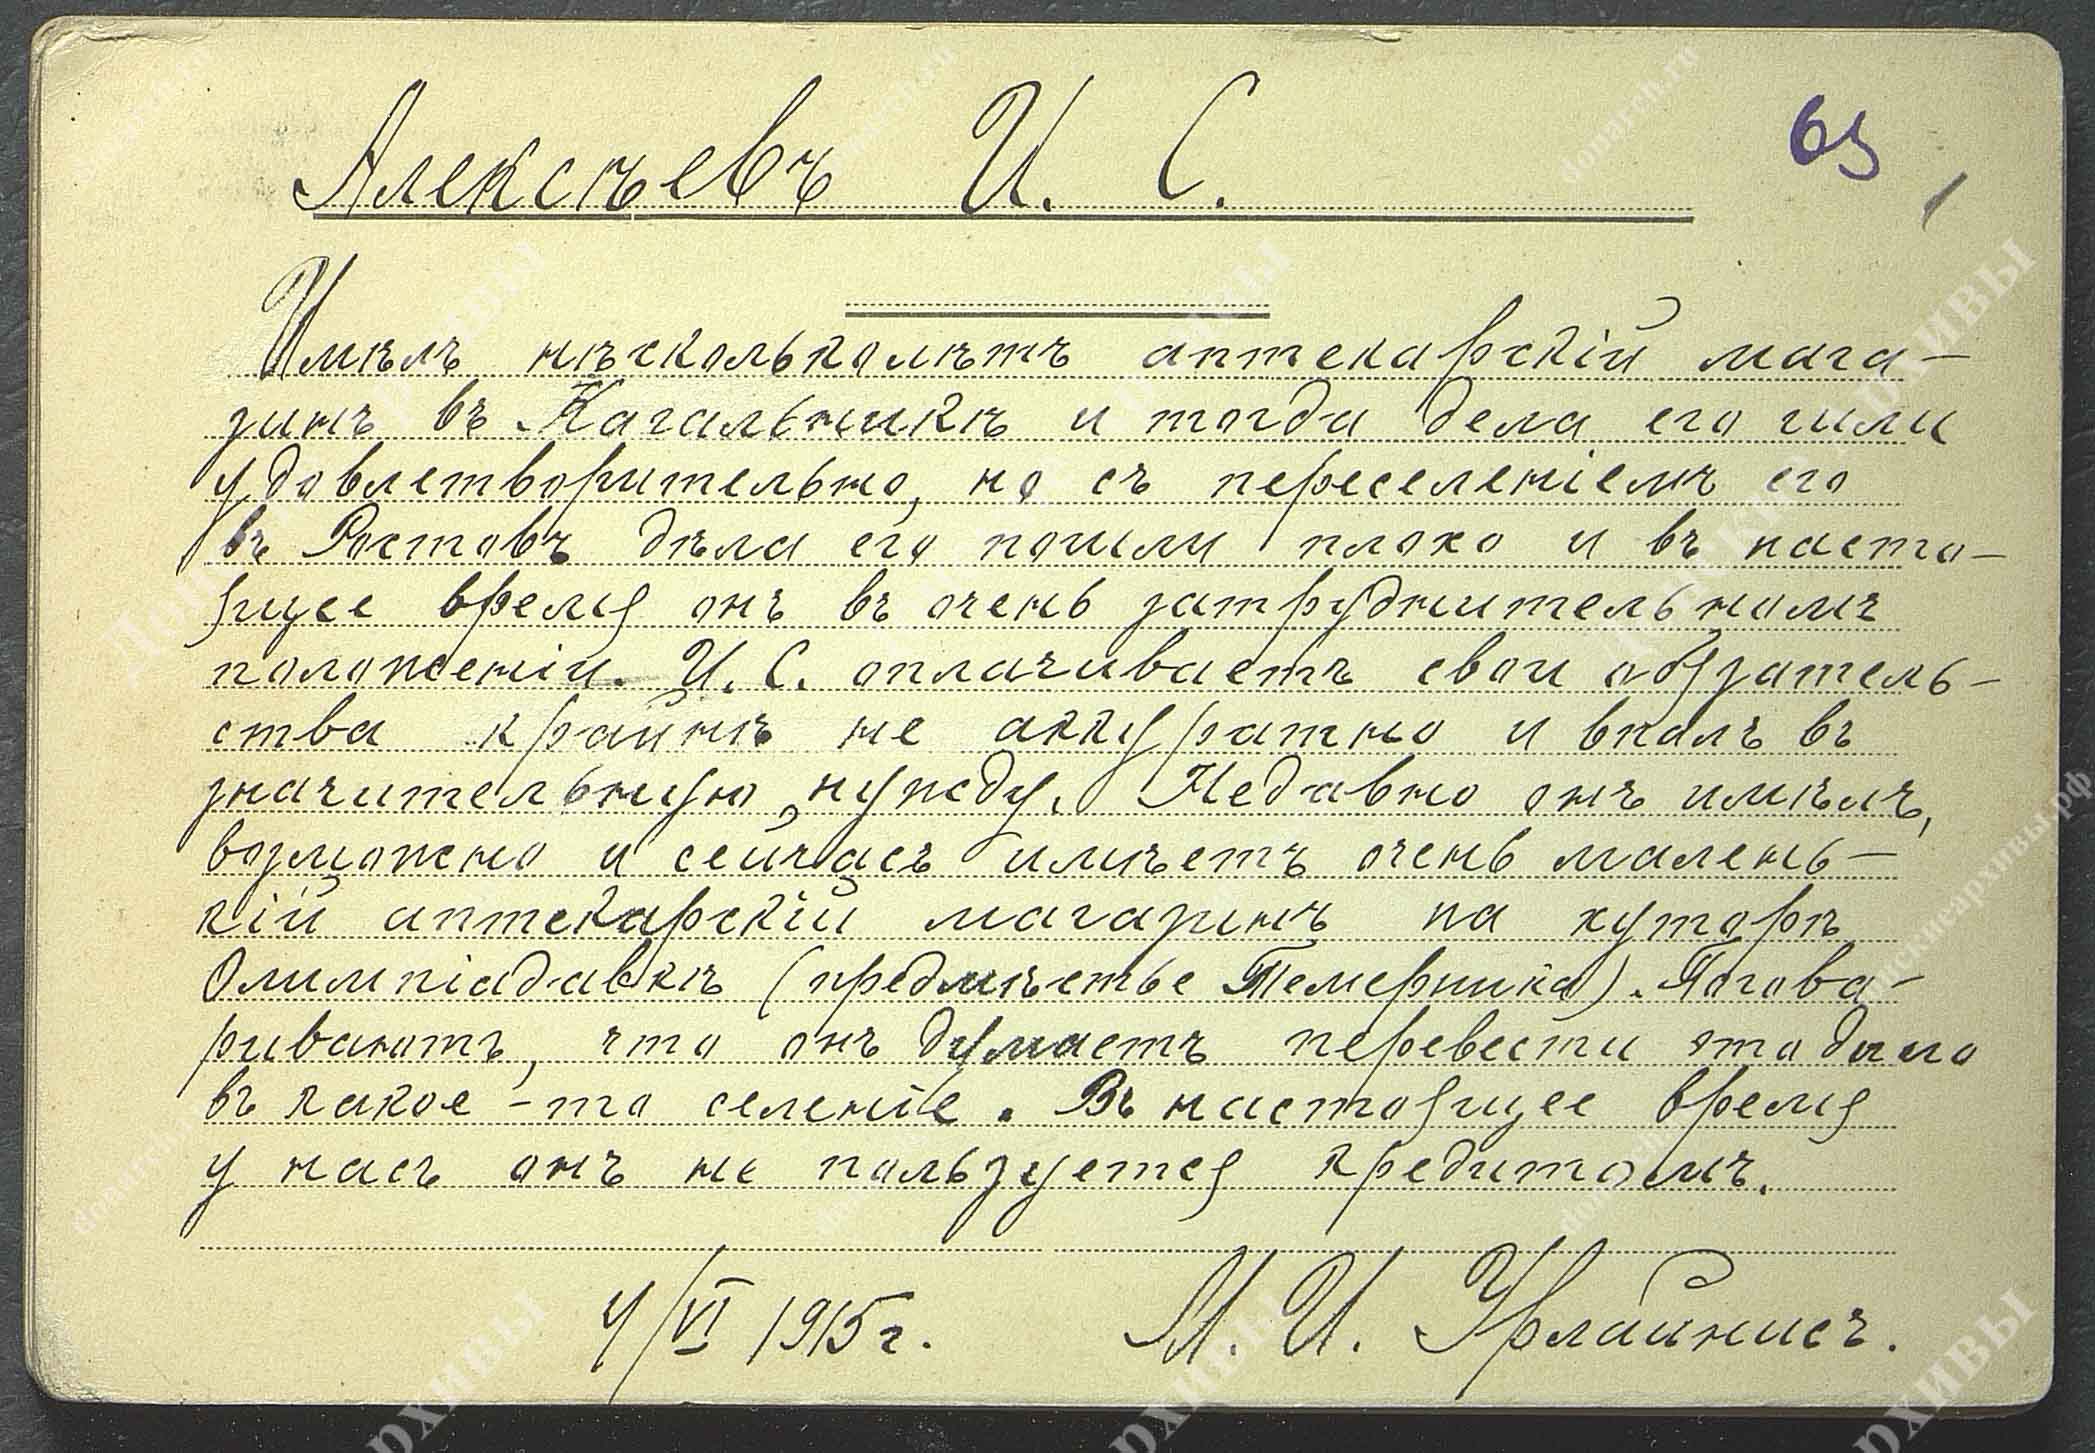 65
Алексѣевъ И. С.
Имѣлъ нѣсколько лѣтъ аптекарскій мага-
зинъ въ Кагальникѣ и тогда дела его шли
удовлетворительно, но съ переселеніемъ его
въ Ростовъ дѣла его пошли плохо и въ насто-
ящее время онъ въ очень затруднительномъ
положеніи. И. С. оплачиваетъ свои обязатель-
ства крайнѣ не аккуратно и впалъ въ
значительную нужду. Недавно онъ имѣлъ,
возможно и сейчасъ имѣетъ очень малень-
кій аптекарскій магазинъ на хуторѣ
Олимпіадавкѣ (предмѣстье Темерника). Погова-
риваютъ, что онъ думаетъ перевести это дѣло
въ какое-то селеніе. Въ настоящее время
у насъ онъ не пользуется кредитомъ.
4/VI 1915 г. М. И. Урлайнисъ.
Донские архивы
donarch.ru
донскиеархивы.рф